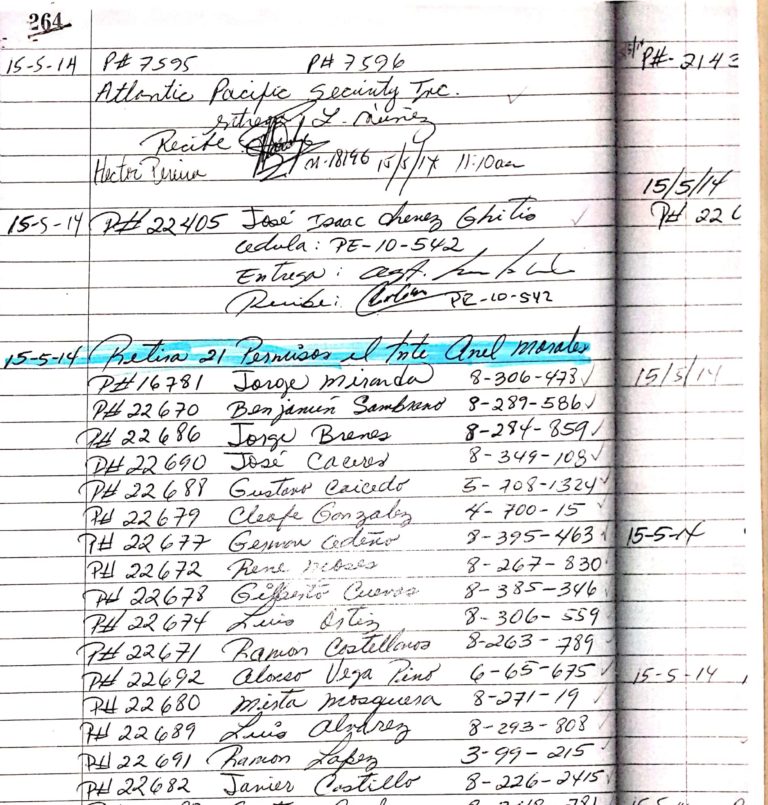 264
15-5-14 P# 7595 P# 7596
Atlantic Pacific Security Inc.
entrega L. Núñez
Recibe
Hector Pereira 15/5/14 11:10am
15-5-14 P# 22405 José Isaac Chenez Ghitio
cedula: PE-10-542
Entrega:
Recibe: PE-10-542
15-5-14 Retira 21 Permisos el Tnte Anel Morales
P# 16781 Jorge Miranda 8-306-473
P# 22670 Benjamín Sambrano 8-289-586
P# 22686 Jorge Brenes 8-284-859
P# 22690 José Caceres 8-349-103
P# 22688 Gustavo Caicedo 5-708-1324
P# 22679 Cleofe Gonzalez 4-700-15
P# 22677 German Cedeño 8-395-463
P# 22672 Rene Moses 8-267-830
P# 22678 Gilberto Cuevas 8-385-346
P# 22674 Luis Ortiz 8-306-559
P# 22671 Ramon Costellanos 8-263-789
P# 22692 Alonso Vega Pino 6-65-675
P# 22680 Mista Mosquera 8-271-19
P# 22689 Luis Alvarez 8-293-808
P# 22691 Ramon Lopez 3-99-215
P# 22682 Javier Costillo 8-226-2415
P#-2143
15/5/14
P# 226
15/5/14
15-5-14
15-5-14